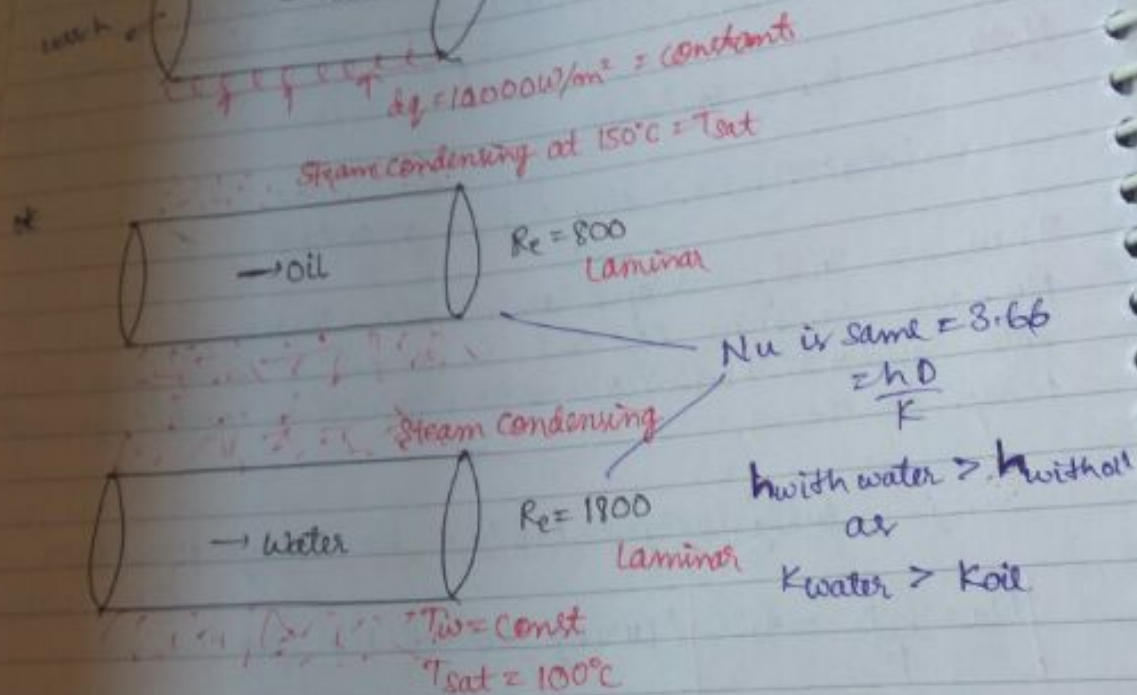 = 10000W/m² = constant
Steam condensing at 150°C = Tsat
→ oil
Re = 800
Laminar
Nu is same = 3.66
= hD
K
Steam Condensing
→ Water
Re = 1800
Laminar
hwith water > hwithoil
as
Kwater > Koil
Tw = Const
Tsat = 100°C